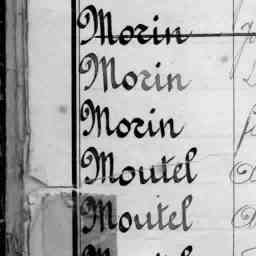 Morin
Morin
Morin
Moutel
Moutel